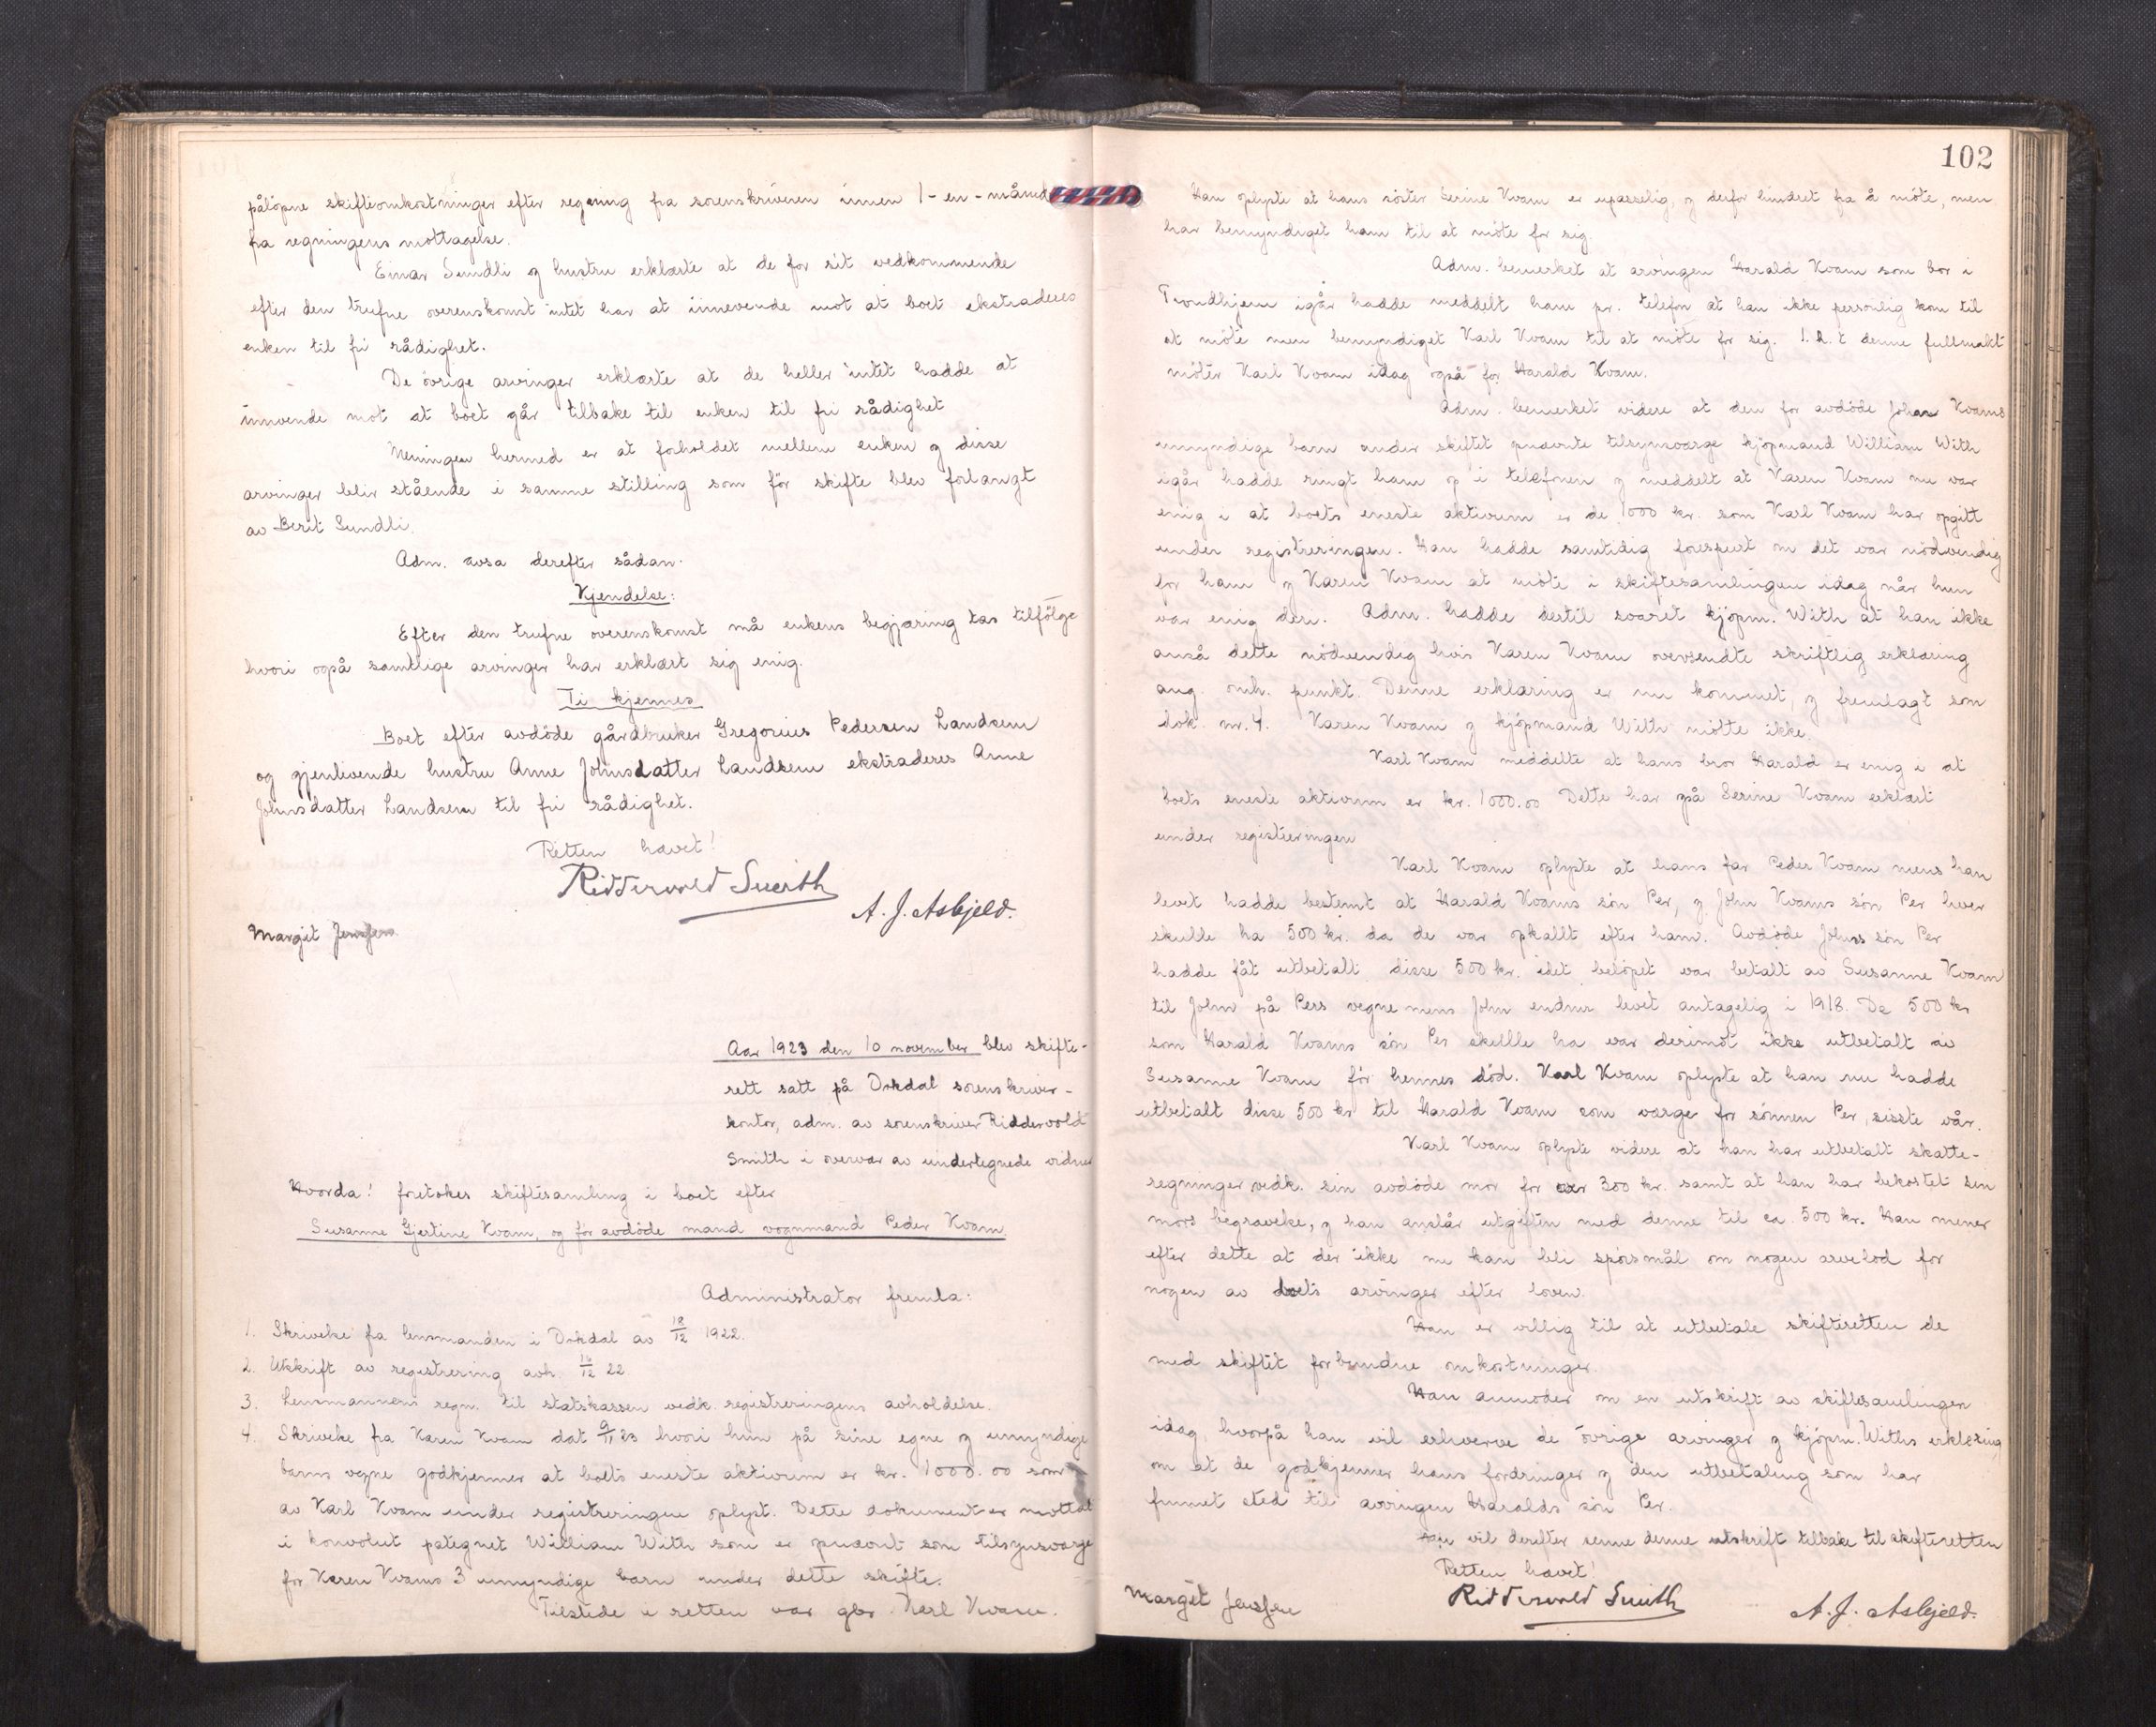 påløpne skifteomkostninger efter regning fra sorenskriveren innen 1-en-måned
fra regningens mottagelse.
Einar Sundli og hustru erklærte at de for sit vedkommende
efter den trufne overenskomst intet har at innevende mot at boet ekstraderes
enken til fri rådighet.
De øvrige arvinger erklærte at de heller intet hadde at
innvende mot at boet går tilbake til enken til fri rådighet
Meningen hermed er at forholdet mellem enken og disse
arvinger blir stående i samme stilling som før skifte blev forlangt
av Berit Sundli.
Adm. avsa derefter sådan.
Kjendelse:
Efter den trufne overenskomst må enkens begjæring tas tilfølge
hvori også samtlige arvinger har erklært sig enig.
Ti kjennes
Boet efter avdøde gårdbruker Gregorius Pedersen Landsem
og gjenlevende hustru Anne Johnsdatter Landsem ekstraderes Anne
Johnsdatter Landsem til fri rådighet.
Retten hævet!
Riddervold Smith
A. J. Asbjeld.
Margit
Aar 1923 den 10 november blev skifte-
rett satt på Orkdal sorenskriver-
kontor, adm. av sorenskriver Riddervold
Smith i overvær av undertegnede vidner
Hvorda! foretokes skiftesamling i boet efter
Susanne Gjertine Kvam, og før avdøde mand vognmand Peder Kvam.
Administrator fremla:
1. Skrivelse fra lensmanden i Orkdal av 18/12 1922.
2. Utskrift av registrering avh. 16/12 22
3. Lensmannens regn. til statskassen vedk. registreringens avholdelse.
4. Skrivelse fra Karen Kvam dat 9/11 23 hvori hun på sine egne og umyndige
barns vegne godkjenner at boets eneste aktivum er kr. 1000.00 som
av Karl Kvam under registreringen oplyst. Dette dokument er mottat
i konvolut påtegnet William With som er opnævnt som tilsynsværge
for Karen Kvams 3 umyndige barn under dette skifte.
Tilstede i retten var gbr. Karl Kvam.
102
Han oplyste at hans søster Serine Kvam er upasselig, og derfor hindret fra å møte, men
har bemyndiget ham til at møte for sig.
Adm. bemerket at arvingen Harald Kvam som bor i
Trondhjem igår hadde meddelt ham pr. telefon at han ikke personlig kom til
at møte men bemyndiget Karl Kvam til at møte for sig. I.h.t denne fullmakt
møter Karl Kvam idag også for Harald Kvam.
Adm. bemerket videre at den for avdøde Johan Kvams
umyndige barn under skiftet opnævnte tilsynsværge kjøpmand William With
igår hadde ringt ham op i telefonen og meddelt at Karen Kvam nu var
enig i at boets eneste aktivum er de 1000 kr. som Karl Kvam har opgitt
under registreringen. Han hadde samtidig forespurt om det var nødvendig
for ham og Karen Kvam at møte i skiftesamlingen idag når hun
var enig deri. Adm. hadde dertil svaret kjøpm. With at han ikke
anså dette nødvendig hvis Karen Kvam oversendte skriftlig erklæring
ang. omh. punkt. Denne erklæring er nu kommet, og fremlagt som
dok. nr. 4. Karen Kvam og kjøpmand With møtte ikke.
Karl Kvam meddelte at hans bror Harald er enig i at
boets eneste aktivum er kr. 1000.00 Dette har også Serine Kvam erklært
under registreringen
Karl Kvam oplyste at hans far Peder Kvam mens han
levet hadde bestemt at Harald Kvams søn Per, og John Kvams søn Per hver
skulle ha 500 kr. da de var opkallt efter ham. Avdøde Johns søn Per
hadde fåt utbetalt disse 500 kr. idet beløpet var betalt av Susanne Kvam
til John på Pers vegne mens John endnu levet antagelig i 1918. De 500 kr
som Harald Kvams søn Per skulle ha var derimot ikke utbetalt av
Susanne Kvam før hennes død. Karl Kvam oplyste at han nu hadde
utbetalt disse 500 kr til Harald Kvam som værge for sønnen Per, sisste vår.
Karl Kvam oplyste videre at han har utbetalt skatte-
regninger vedk. sin avdøde mor for over 300 kr. samt at han har bekostet sin
mors begravelse, og han anslår utgiften med denne til ca. 500 kr. Han mener
efter dette at der ikke nu kan bli spørsmål om nogen arvelod for
nogen av boets arvinger efter loven.
Han er villig til at utbetale skifteretten de
med skiftet forbundne omkostninger.
Han anmoder om en utskrift av skiftesamlingen
idag, hvorpå han vil erhverve de øvrige arvinger og kjøpm. Withs erklæring
om at de godkjenner hans fordringer og den utbetaling som har
funnet sted til arvingen Haralds søn Per.
Han vil derefter senne denne utskrift tilbake til skifteretten
Retten hævet!
Margit
Riddervold Smith
A. J. Asbjeld.